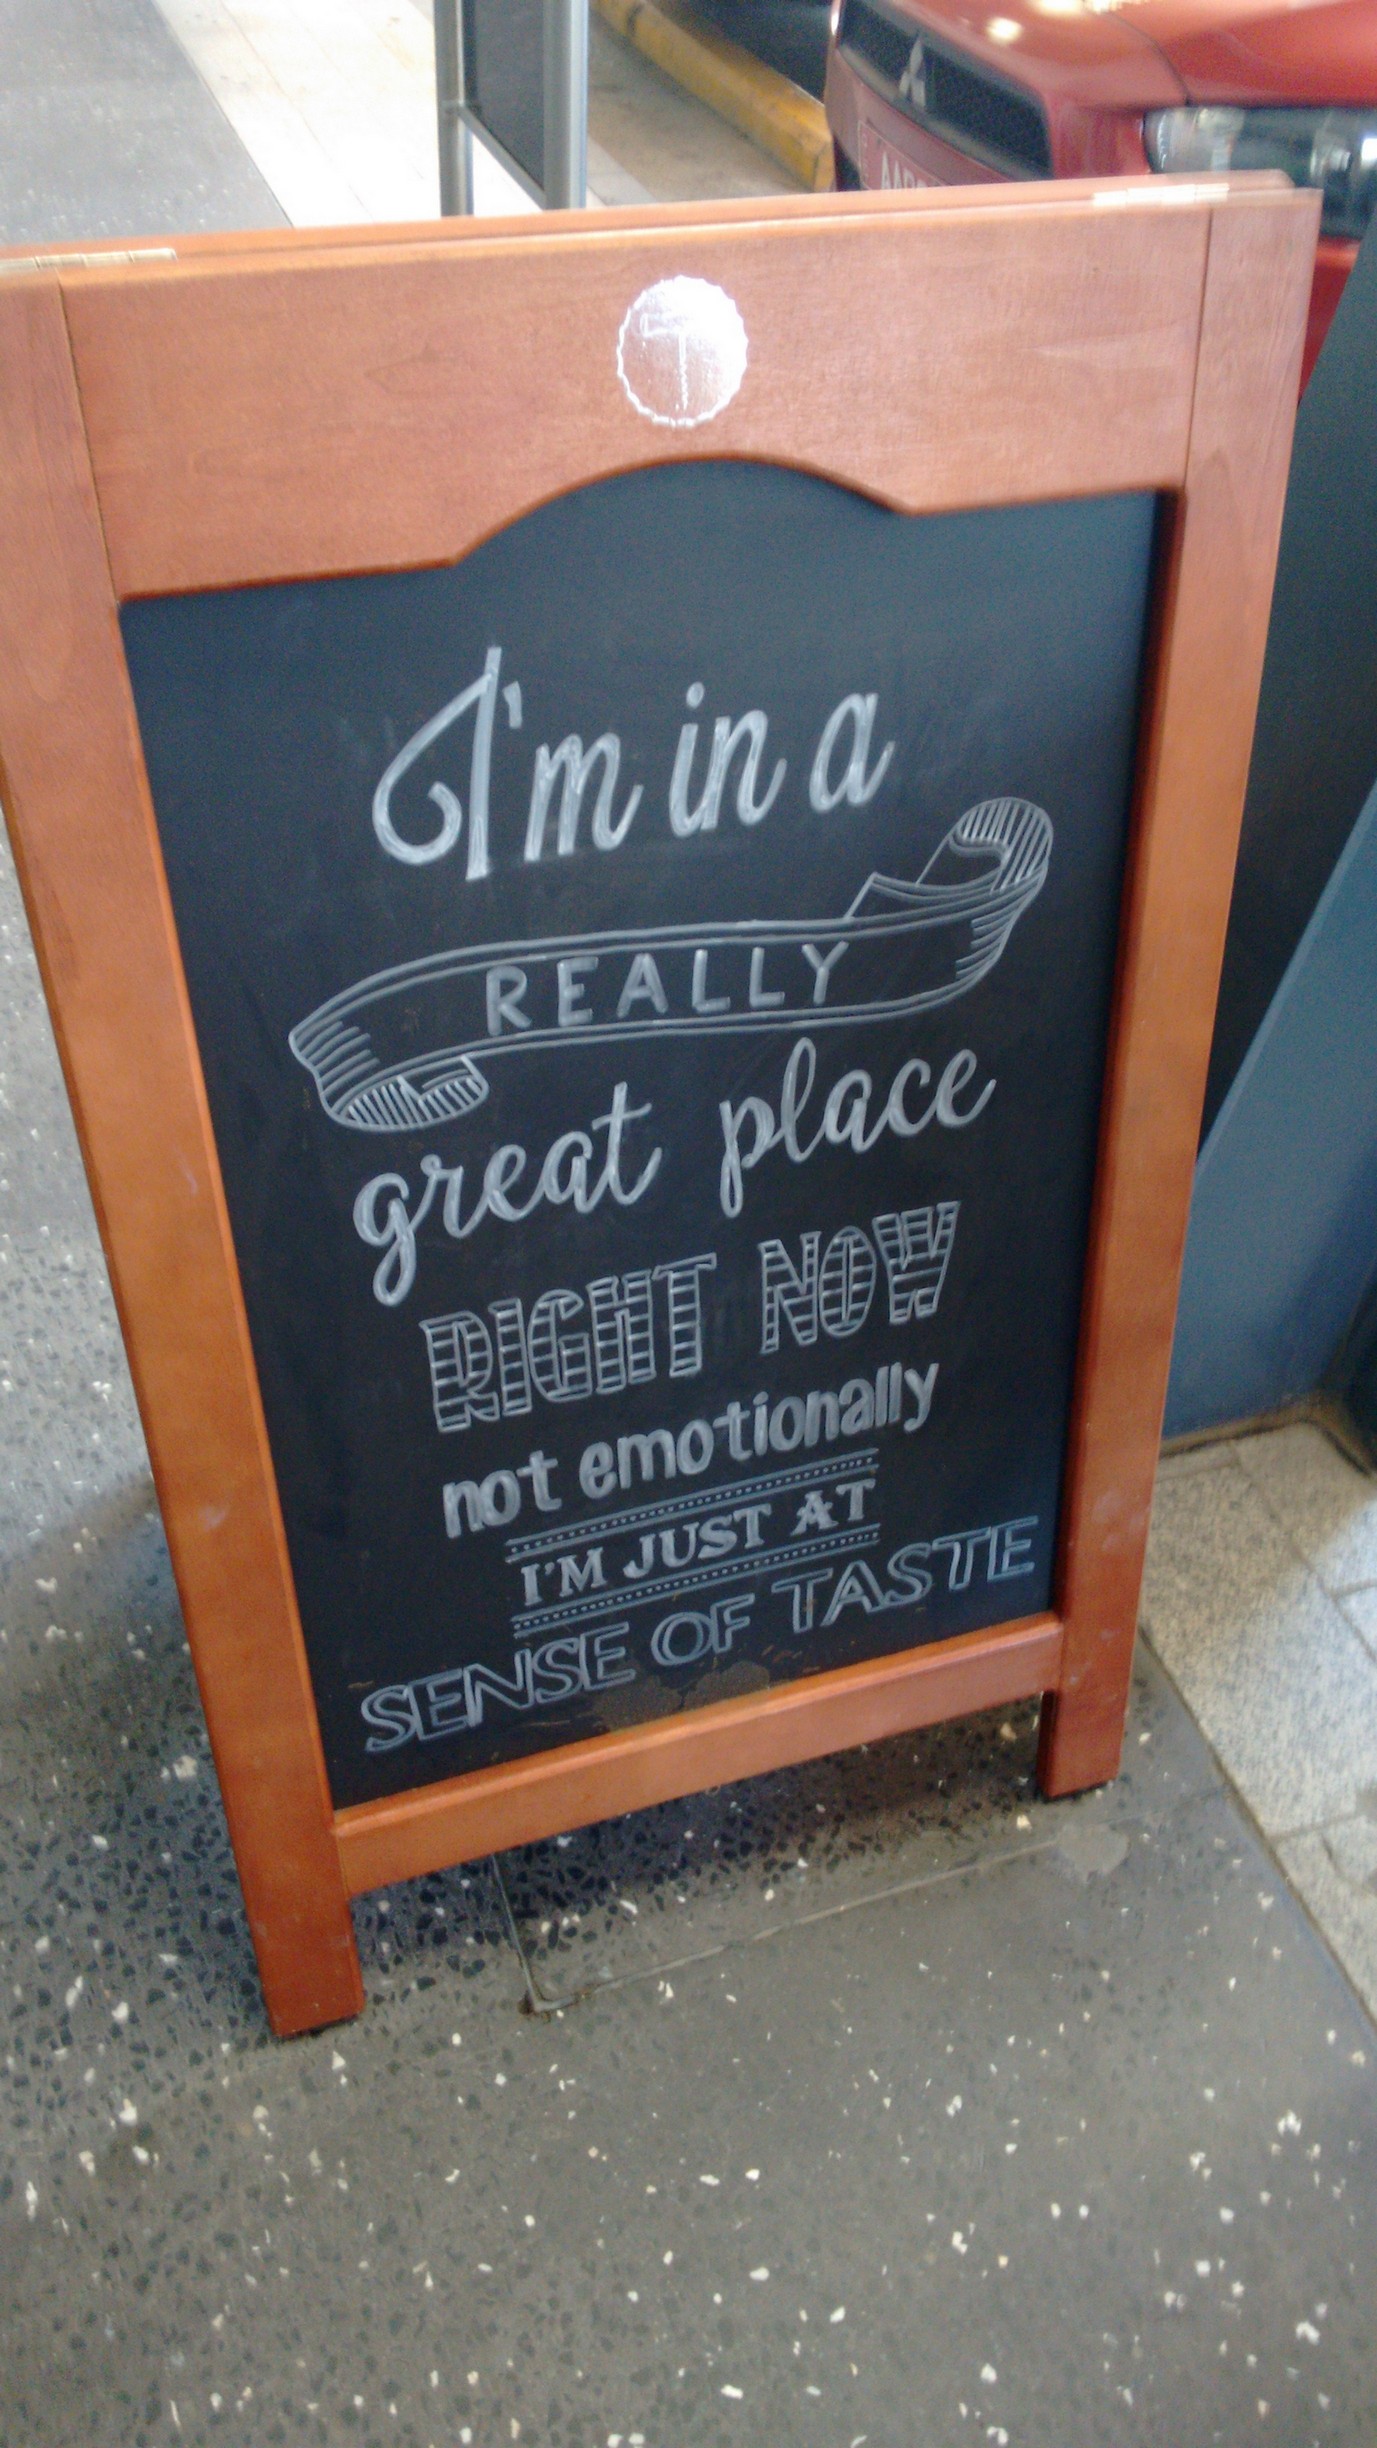 I'm in a
REALLY
great place
RIGHT NOW
not emotionally
I'M JUST AT
SENSE OF TASTE